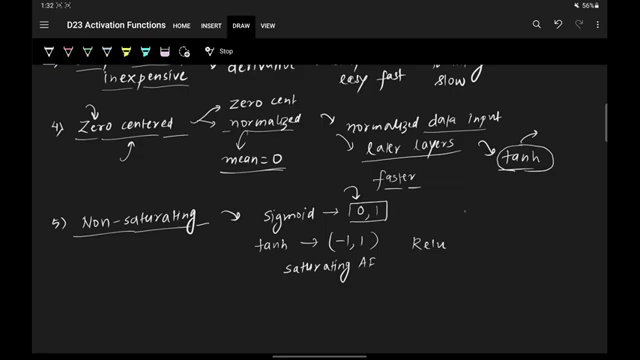 1:32
56%
D23 Activation Functions
HOME INSERT DRAW VIEW
Stop
inexpensive derivative easy fast slow
zero cent
4) Zero centered normalized normalized data input
mean = 0 later layers tanh
faster
5) Non-saturating sigmoid → 0, 1
tanh → (-1, 1) Relu
saturating AF